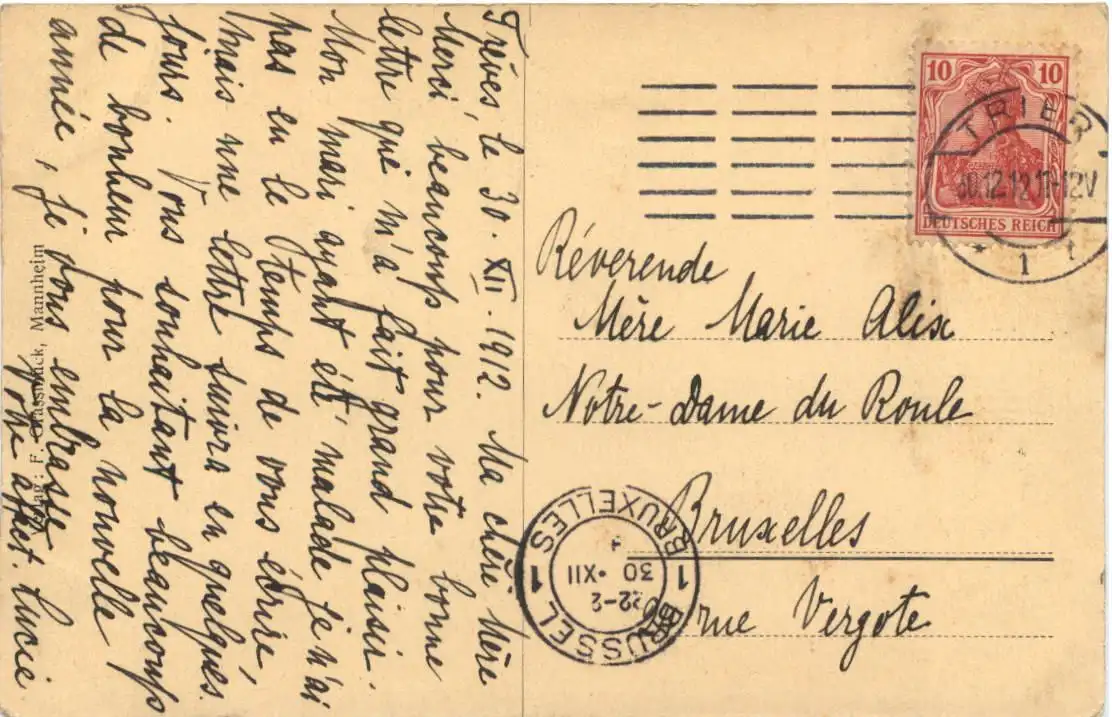 Trèves le 30. XII. 1912. Ma chère Mère
Merci beaucoup pour votre bonne
lettre qui m'a fait grand plaisir.
Mon mari ayant été malade je n'ai
pas eu le temps de vous écrire,
mais une lettre suivra en quelques
jours. Vous souhaitant beaucoup
de bonheur pour la nouvelle
année, je vous embrasse
Votre affect. Lucie
F. Grassmück, Mannheim
10 10
DEUTSCHES REICH
TRIER
30.12.12 11-12V
* 1 t
Réverende
Mère Marie Alix
Notre-Dame du Roule
Bruxelles
rue Vergote
1 BRUXELLES 1
30 • XII
22-2
BRUSSEL